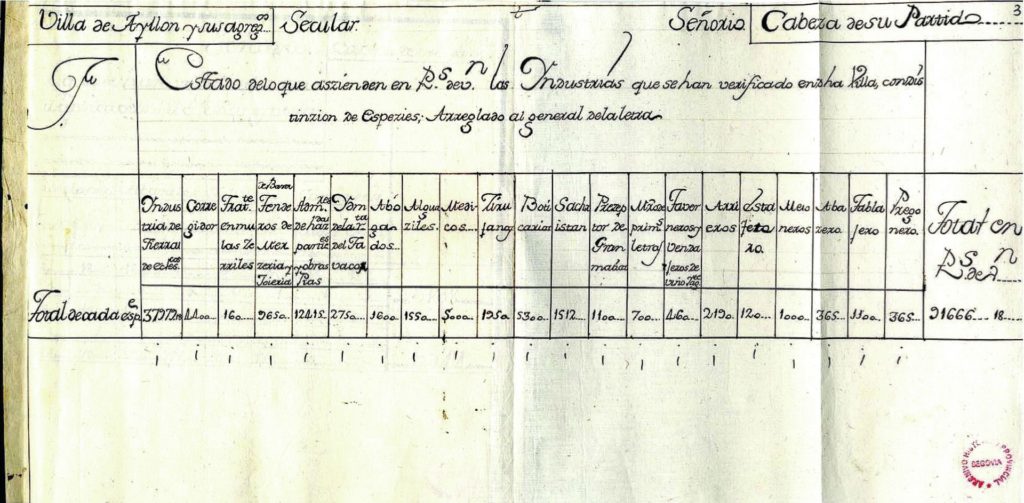 Villa de Ayllon y sus agreg.ᵒˢ Secular. Señorio Cabeza de su Partido 3
F.
Estado de lo que aszienden en R.ˢ de v.ⁿ las Yndustrias que se han verificado en dha Villa, con dis
tinzion de Espezies; Arreglado al general de la letra
Yndus tria de Tierras de ecles.ᵒˢ
Corre gidor
Trat.ᵗᵉ en mu las Ze rriles
Tende ros de Mer zeria y Joieria
Adm.ʳᵉˢ de haz.ᵈᵃˢ partic.ᵉˢ y obras Pias
Adm.ᵒʳ de la r.ᵗᵃ del Ta vaco
Abo gan dos
Alqua ziles
Medi cos
Ziru jano
Boti carios
Sachr istan
Prezep tor de Gran matica
Mro de prim.ˢ letras
Taver neros y
Arri eros
Esta fete ro
Meso neros
Aba zero
Tabla jero
Prego nero
Total en R.ˢ de v.ⁿ
Total de cada esp.ᵉ 37972 4400 160 9650 12415 2750 1600 1550 5000 1950 5300 1512 1100 700 460 2190 120 1000 365 1100 365 91666 18
ARCHIVO HISTORICO PROVINCIAL SEGOVIA